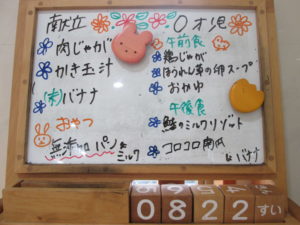 献立
肉じゃが
かき玉汁
(果)バナナ
おやつ
無添加パン&ミルク
0才児
午前食
鶏じゃが
ほうれん草の卵スープ
おかゆ
午後食
鮭のミルクリゾット
コロコロ南瓜
&バナナ
0 8 2 2 すい